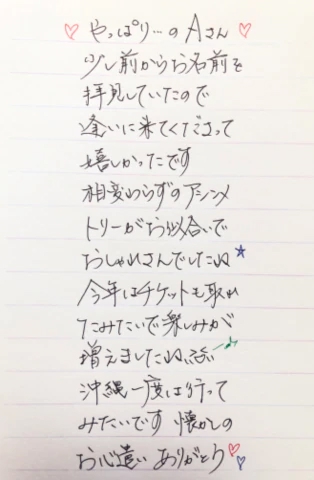 やっぱり…のAさん
少し前からお名前を
拝見していたので
逢いに来てくださって
嬉しかったです
相変わらずのアシンメ
トリーがお似合いで
おしゃれさんでしたね
今年はチケットも取れ
たみたいで楽しみが
増えましたね
沖縄一度は行って
みたいです 懐かしの
お心遣い ありがとう